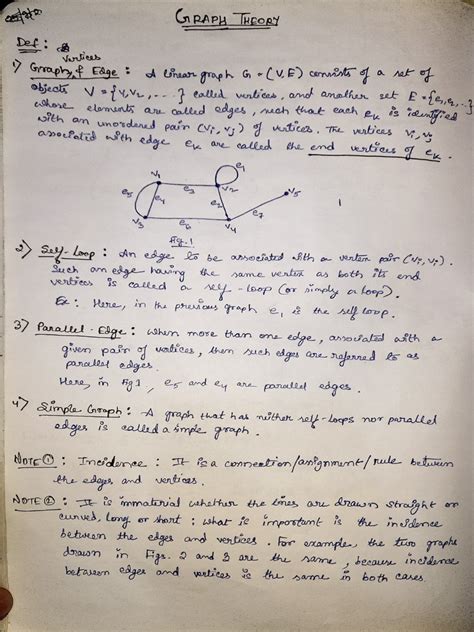 GRAPH THEORY
Def :
vertices
1) Graph, & Edge : A linear graph G = (V, E) consists of a set of
objects V = {v1, v2, ...} called vertices, and another set E = {e1, e2, ..}
whose elements are called edges, such that each ek is identified
with an unordered pair (vi, vj) of vertices. The vertices vi, vj
associated with edge ek are called the end vertices of ek.
e1
v1 e3 v2 v5
e5 e4 e2 e7
v3 e6 v4
Fig. 1
2) Self-Loop : An edge to be associated with a vertex pair (vi, vi).
Such an edge having the same vertex as both its end
vertices is called a self-loop (or simply a loop).
Ex : Here, in the previous graph e1 is the self loop.
3) Parallel-Edge : when more than one edge, associated with a
given pair of vertices, then such edges are referred to as
parallel edges.
Here, in Fig 1, e5 and e4 are parallel edges.
4) Simple Graph : A graph that has neither self-loops nor parallel
edges is called a simple graph.
NOTE ① : Incidence : It is a connection/assignment/rule between
the edges and vertices.
NOTE ② : It is immaterial whether the lines are drawn straight or
curved, long or short : what is important is the incidence
between the edges and vertices. For example, the two graphs
drawn in Figs. 2 and 3 are the same, because incidence
between edges and vertices is the same in both cases.